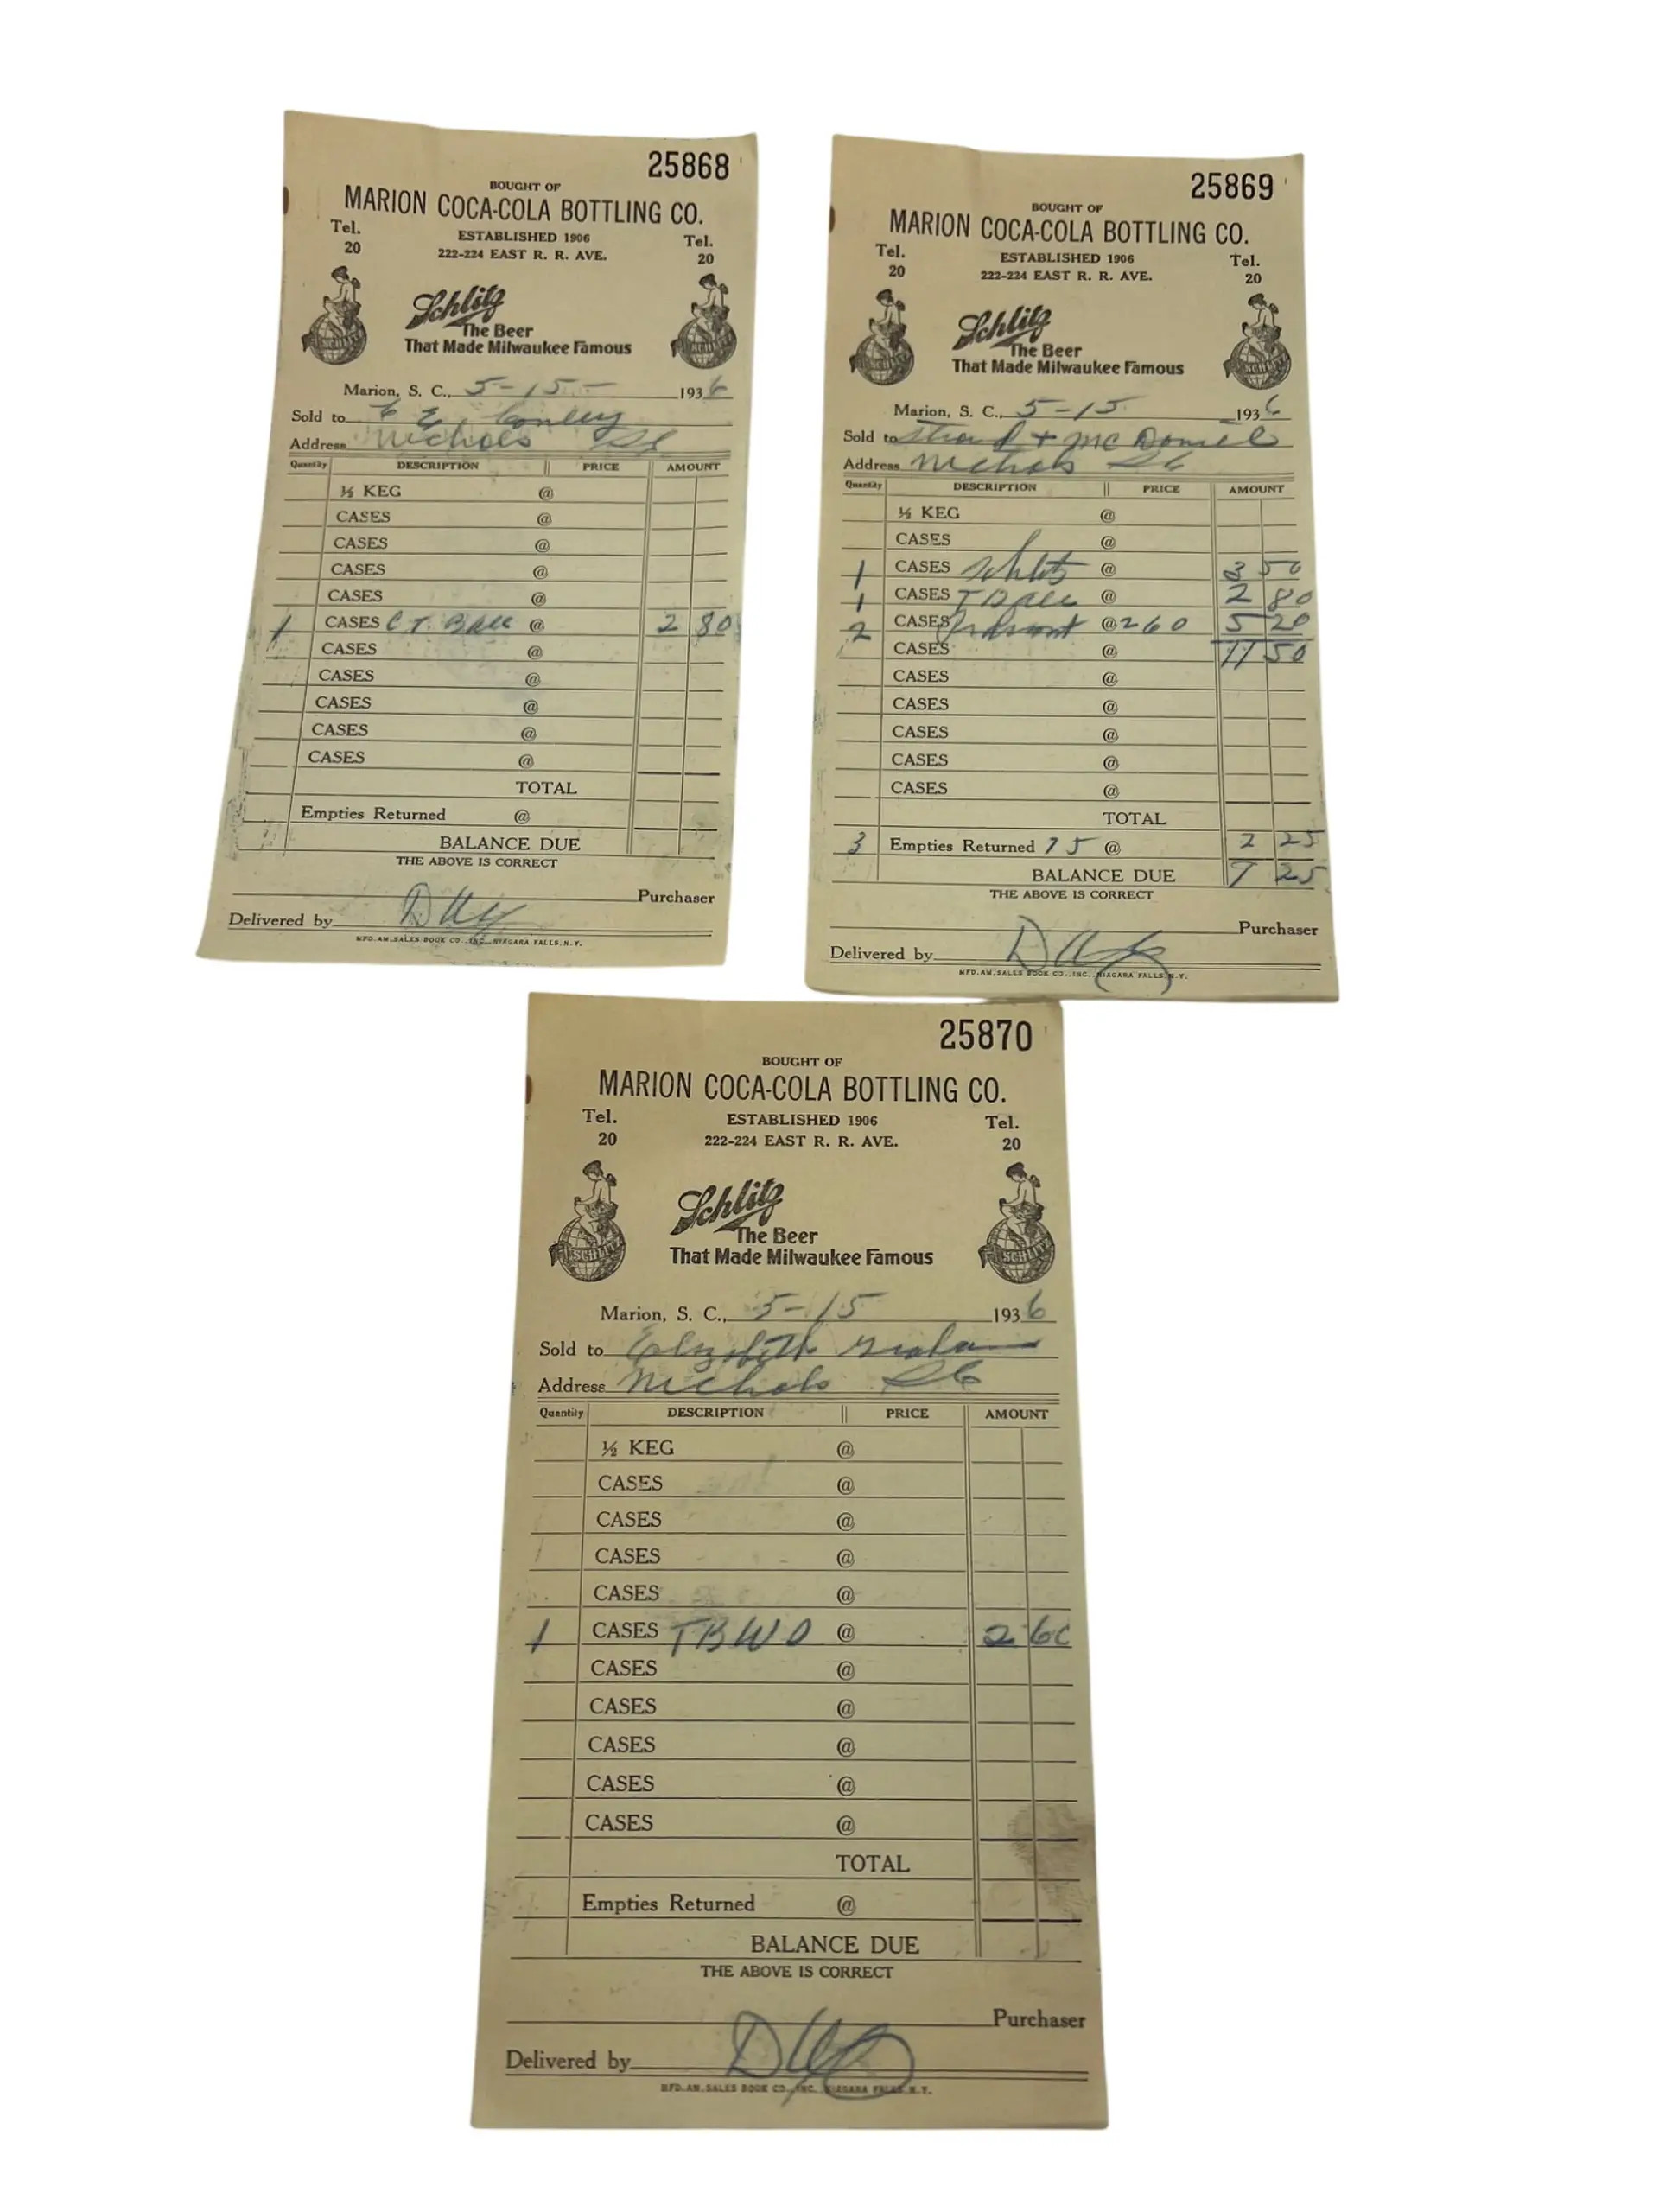 25868
BOUGHT OF
MARION COCA-COLA BOTTLING CO.
Tel. 20 ESTABLISHED 1906 Tel. 20
222-224 EAST R. R. AVE.
Schlitz
The Beer
That Made Milwaukee Famous
SCHLITZ SCHLITZ
Marion, S. C., 5-15- 1936
Sold to E E Conley
Address Nichols SC
Quantity DESCRIPTION PRICE AMOUNT
½ KEG @
CASES @
CASES @
CASES @
CASES @
1 CASES C T. Ball @ 2 80
CASES @
CASES @
CASES @
CASES @
CASES @
TOTAL
Empties Returned @
BALANCE DUE
THE ABOVE IS CORRECT
Purchaser
Delivered by
MFD. AM. SALES BOOK CO., INC., NIAGARA FALLS, N.Y.
25869
BOUGHT OF
MARION COCA-COLA BOTTLING CO.
Tel. 20 ESTABLISHED 1906 Tel. 20
222-224 EAST R. R. AVE.
Schlitz
The Beer
That Made Milwaukee Famous
SCHLITZ SCHLITZ
Marion, S. C., 5-15 1936
Sold to + McDaniel
Address Nichols SC
Quantity DESCRIPTION PRICE AMOUNT
½ KEG @
CASES @
1 CASES Schlitz @ 3 50
1 CASES T Ball @ 2 80
2 CASES Piedmont @ 2 60 5 20
CASES @ 11 50
CASES @
CASES @
CASES @
CASES @
CASES @
TOTAL
3 Empties Returned 75 @ 2 25
BALANCE DUE 9 25
THE ABOVE IS CORRECT
Purchaser
Delivered by
MFD. AM. SALES BOOK CO., INC., NIAGARA FALLS, N.Y.
25870
BOUGHT OF
MARION COCA-COLA BOTTLING CO.
Tel. 20 ESTABLISHED 1906 Tel. 20
222-224 EAST R. R. AVE.
Schlitz
The Beer
That Made Milwaukee Famous
SCHLITZ SCHLITZ
Marion, S. C., 5-15 1936
Sold to Elizabeth Graham
Address Nichols SC
Quantity DESCRIPTION PRICE AMOUNT
½ KEG @
CASES @
CASES @
CASES @
CASES @
1 CASES TBWO @ 2 60
CASES @
CASES @
CASES @
CASES @
CASES @
TOTAL
Empties Returned @
BALANCE DUE
THE ABOVE IS CORRECT
Purchaser
Delivered by
MFD. AM. SALES BOOK CO., INC. NIAGARA FALLS, N.Y.